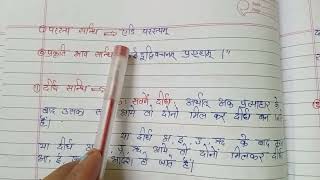 पररूप सन्धि ⇒ एङि पररूपम्
प्रकृति भाव सन्धि द्विवचनम् प्रगृह्यम् ।"
① दीर्घ सन्धि ⇒ सवर्णे दीर्घः अर्थात् अक् प्रत्याहार के
बाद उसका आये तो दोनों मिल कर दीर्घ बन जाते
हैं।
या दीर्घ अ, इ, उ, ऋ के बाद
या दीर्घ आ, ई, ऊ, ऋ आये तो दोनों मिलकर दीर्घ
आ, ई, ऊ, हो जाते हैं।